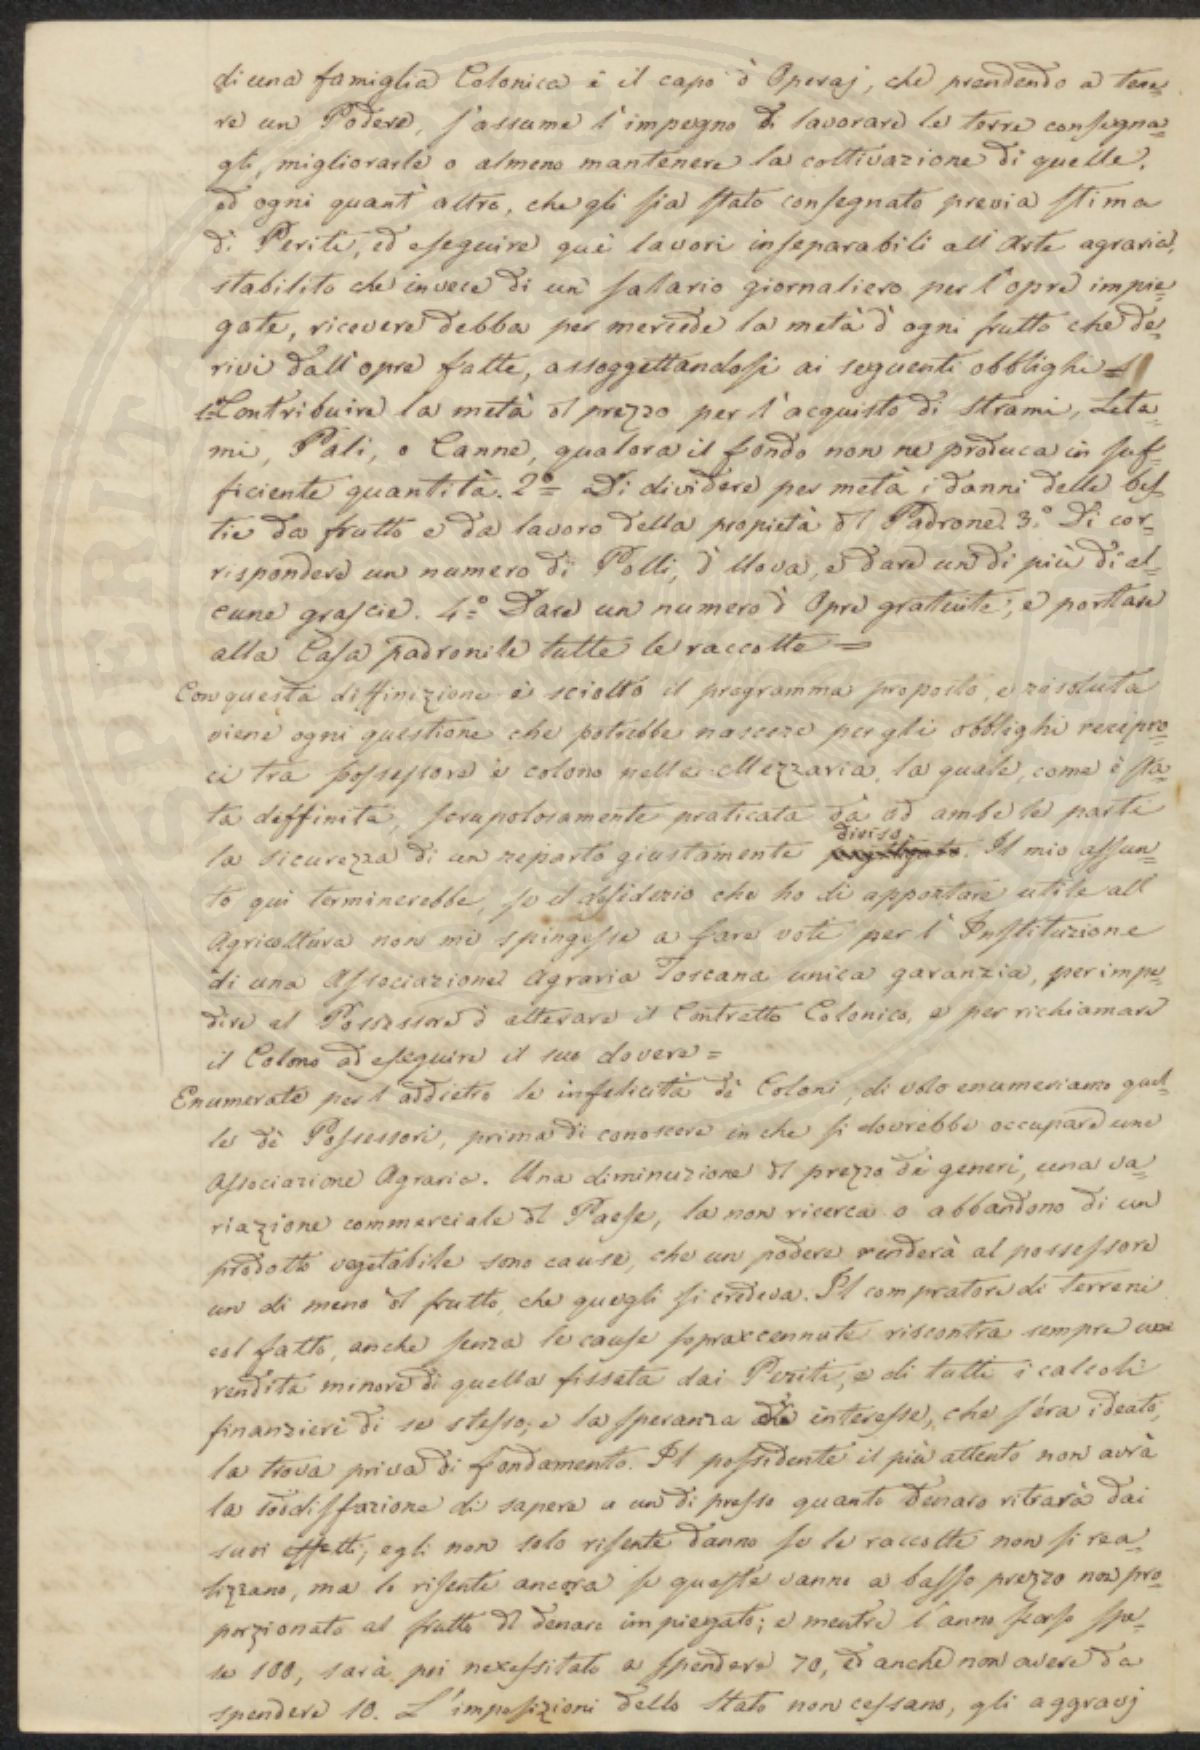 di una famiglia Colonica è il capo d' Operaj, che prendendo a tene=
re un Podere, s'assume l'impegno di lavorare le terre consegna=
gli, migliorarle o almeno mantenere la coltivazione di quelle,
ed ogni quant' altro, che gli sia stato consegnato previa stima
di Periti, ed eseguire què lavori inseparabili all' Arte agraria,
stabilito che invece di un salario giornaliero per l'opre impie=
gate, ricevere debba per mercede la metà d' ogni frutto che de=
rivi dall' opre fatte, assoggettandosi ai seguenti obblighi =
Contribuire la metà del prezzo per l'acquisto di strami, Leta=
mi, Pali, o Canne, qualora il fondo non ne produca in suf=
ficiente quantità. 2° Di dividere per metà i danni delle bes=
tie da frutto e da lavoro della propietà del Padrone. 3.° Di cor=
rispondere un numero di Polli, d' Uova, e dare un di più di al=
cune grascie. 4.° Dare un numero d' Opre gratuite, e portare
alla Casa padronile tutte le raccolte =
Con questa diffinizione è sciolto il programma proposto, e risoluta
viene ogni questione che potrebbe nascere per gli obblighi recipro=
ci tra possessore e colono nella Mezzaria, la quale, come è sta=
ta deffinita, scrupolosamente praticata dà ad ambe le parti
la sicurezza di un reparto giustamente diviso. Il mio assun=
to qui terminerebbe, se il desiderio che ho di apportare utile all'
Agricoltura non mi spingesse a fare voti per l' Instituzione
di una Associazione Agraria Toscana unica garanzia, per impe=
dire al Possessore d' alterare il Contratto Colonico, e per richiamare
il Colono ad eseguire il suo dovere =
Enumerate per l' addietro le infelicità dè Coloni, di volo enumeriamo quel=
le dè Possessori, prima di conoscere in che si dovrebbe occupare una
Associazione Agraria. Una diminuzione del prezzo dè generi, una va=
riazione commerciale del Paese, la non ricerca o abbandono di un
prodotto vegetabile sono cause, che un podere renderà al possessore
un di meno del frutto, che quegli si credeva. Il compratore di terreni
col fatto, anche senza le cause sopraccennate riscontra sempre una
rendita minore di quella fissata dai Periti, e di tutti i calcoli
finanzieri di se stesso; e la speranza d' interesse, che s'era ideato,
la trova priva di fondamento. Il possidente il più attento non avrà
la soddisfazione di sapere a un di presso quanto denaro ritrarà dai
suoi effetti; egli non solo risente danno se le raccolte non si rea=
lizzano, ma lo risente ancora se queste vanno a basso prezzo non pro=
porzionato al frutto del denaro impiegato; e mentre l'anno scorso spe=
se 100, sarà poi necessitato a spendere 70, ed anche non avere da
spendere 10. L'imposizioni dello Stato non cessano, gli aggravj